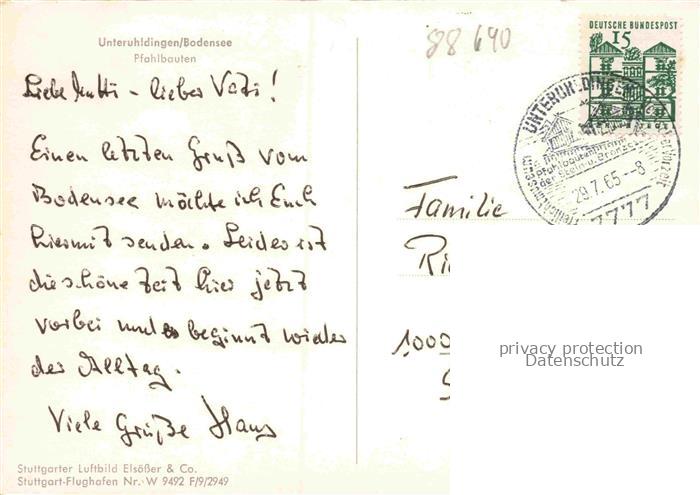 Unteruhldingen/Bodensee
Pfahlbauten
Liebe Mutti - lieber Vati!
Einen letzten Gruß vom
Bodensee möchte ich Euch
hiermit senden. Leider ist
die schöne Zeit hier jetzt
vorbei und es beginnt wieder
der Alltag.
Viele Grüße Hans
Stuttgarter Luftbild Elsäßer & Co.
Stuttgart-Flughafen Nr. W 9492 F/9/2949
88 640
DEUTSCHE BUNDESPOST
15
UNTERUHLDINGEN
Pfahlbautenmuseum
der Stein u. Bronzezeit
29.7.65-8
7777
Familie
1000
privacy protection
Datenschutz